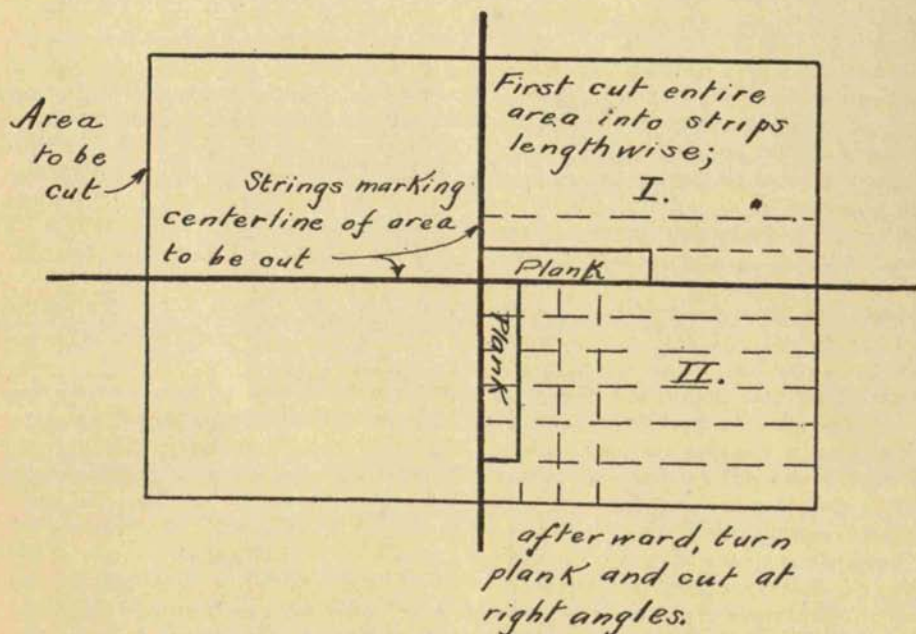 Area
to be
cut
Strings marking
centerline of area
to be cut
First cut entire
area into strips
lengthwise;
I.
Plank
Plank
II.
afterward, turn
plank and cut at
right angles.